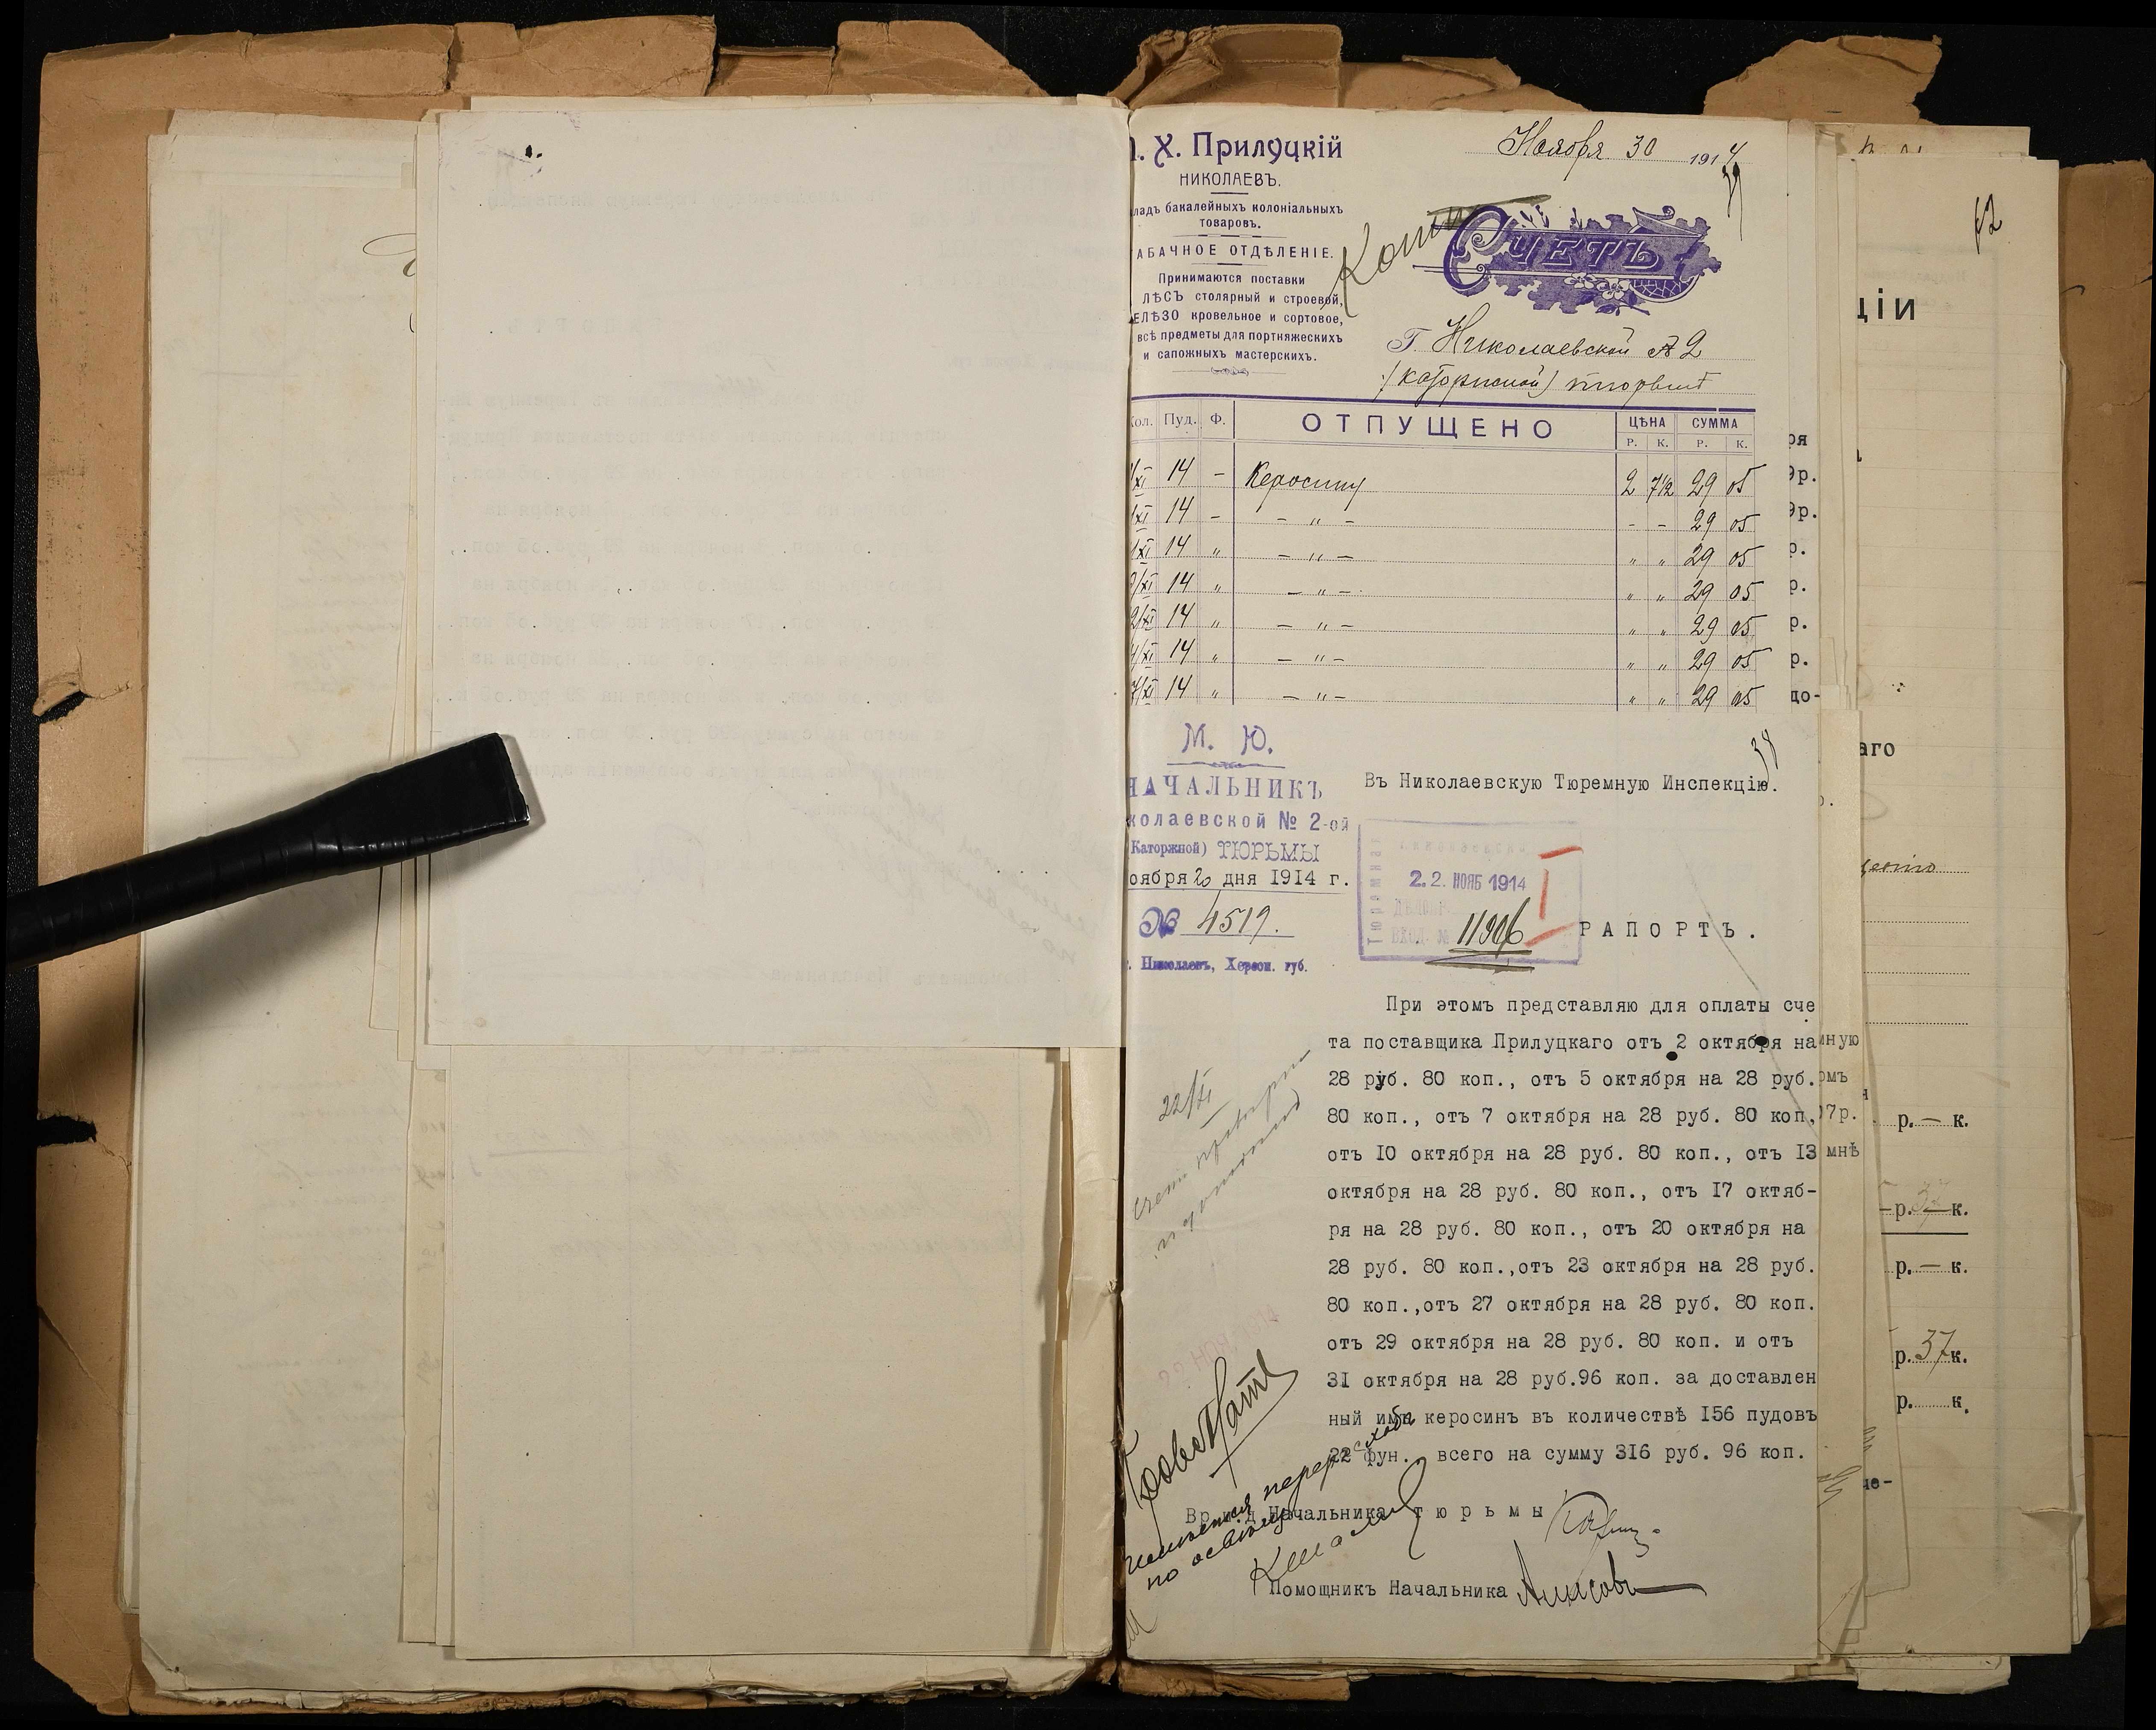 . Х. Прилуцкій
НИКОЛАЕВЪ.
ладъ бакалейныхъ колоніальныхъ
товаровъ.
АБАЧНОЕ ОТДѢЛЕНІЕ.
Принимаются поставки
ЛѢСЪ столярный и строевой,
ЕЛѢЗО кровельное и сортовое,
всѣ предметы для портняжескихъ
и сапожныхъ мастерскихъ.
Ноября 30 1914
Копія
СЧЕТЪ
Г. Николаевской № 2
(каторжной) тюрьмѣ
Кол. Пуд. Ф. ОТПУЩЕНО ЦѢНА СУММА
Р. К. Р. К.
/XI 14 - Керосину 2 7½ 29 05
/XI 14 - - " - - - 29 05
/XI 14 " - " - " " 29 05
/XI 14 " - " - " " 29 05
2/XI 14 " - " - " " 29 05
4/XI 14 " - " - " " 29 05
7/XI 14 " - " - " " 29 05
М. Ю.
НАЧАЛЬНИКЪ
колаевской № 2-ой
(Каторжной) ТЮРЬМЫ
оября 20 дня 1914 г.
№ 4519.
г. Николаевъ, Херсон. губ.
Въ Николаевскую Тюремную Инспекцію.
22 НОЯБ 1914
ВХОД. № 11906
РАПОРТЪ.
При этомъ представляю для оплаты сче
та поставщика Прилуцкаго отъ 2 октября на
28 руб. 80 коп., отъ 5 октября на 28 руб.
80 коп., отъ 7 октября на 28 руб. 80 коп,
отъ I0 октября на 28 руб. 80 коп., отъ I3
октября на 28 руб. 80 коп., отъ I7 октяб-
ря на 28 руб. 80 коп., отъ 20 октября на
28 руб. 80 коп.,отъ 23 октября на 28 руб.
80 коп.,отъ 27 октября на 28 руб. 80 коп.
отъ 29 октября на 28 руб. 80 коп. и отъ
3I октября на 28 руб.96 коп. за доставлен
ный имъ керосинъ въ количествѣ I56 пудовъ
22 фун. всего на сумму 3I6 руб. 96 коп.
22/XI
Вр. и д Начальника тюрьмы
Помощникъ Начальника
ціи
аго
р. — к.
р. 37 к.
р. — к.
р. 37 к.
р. к.